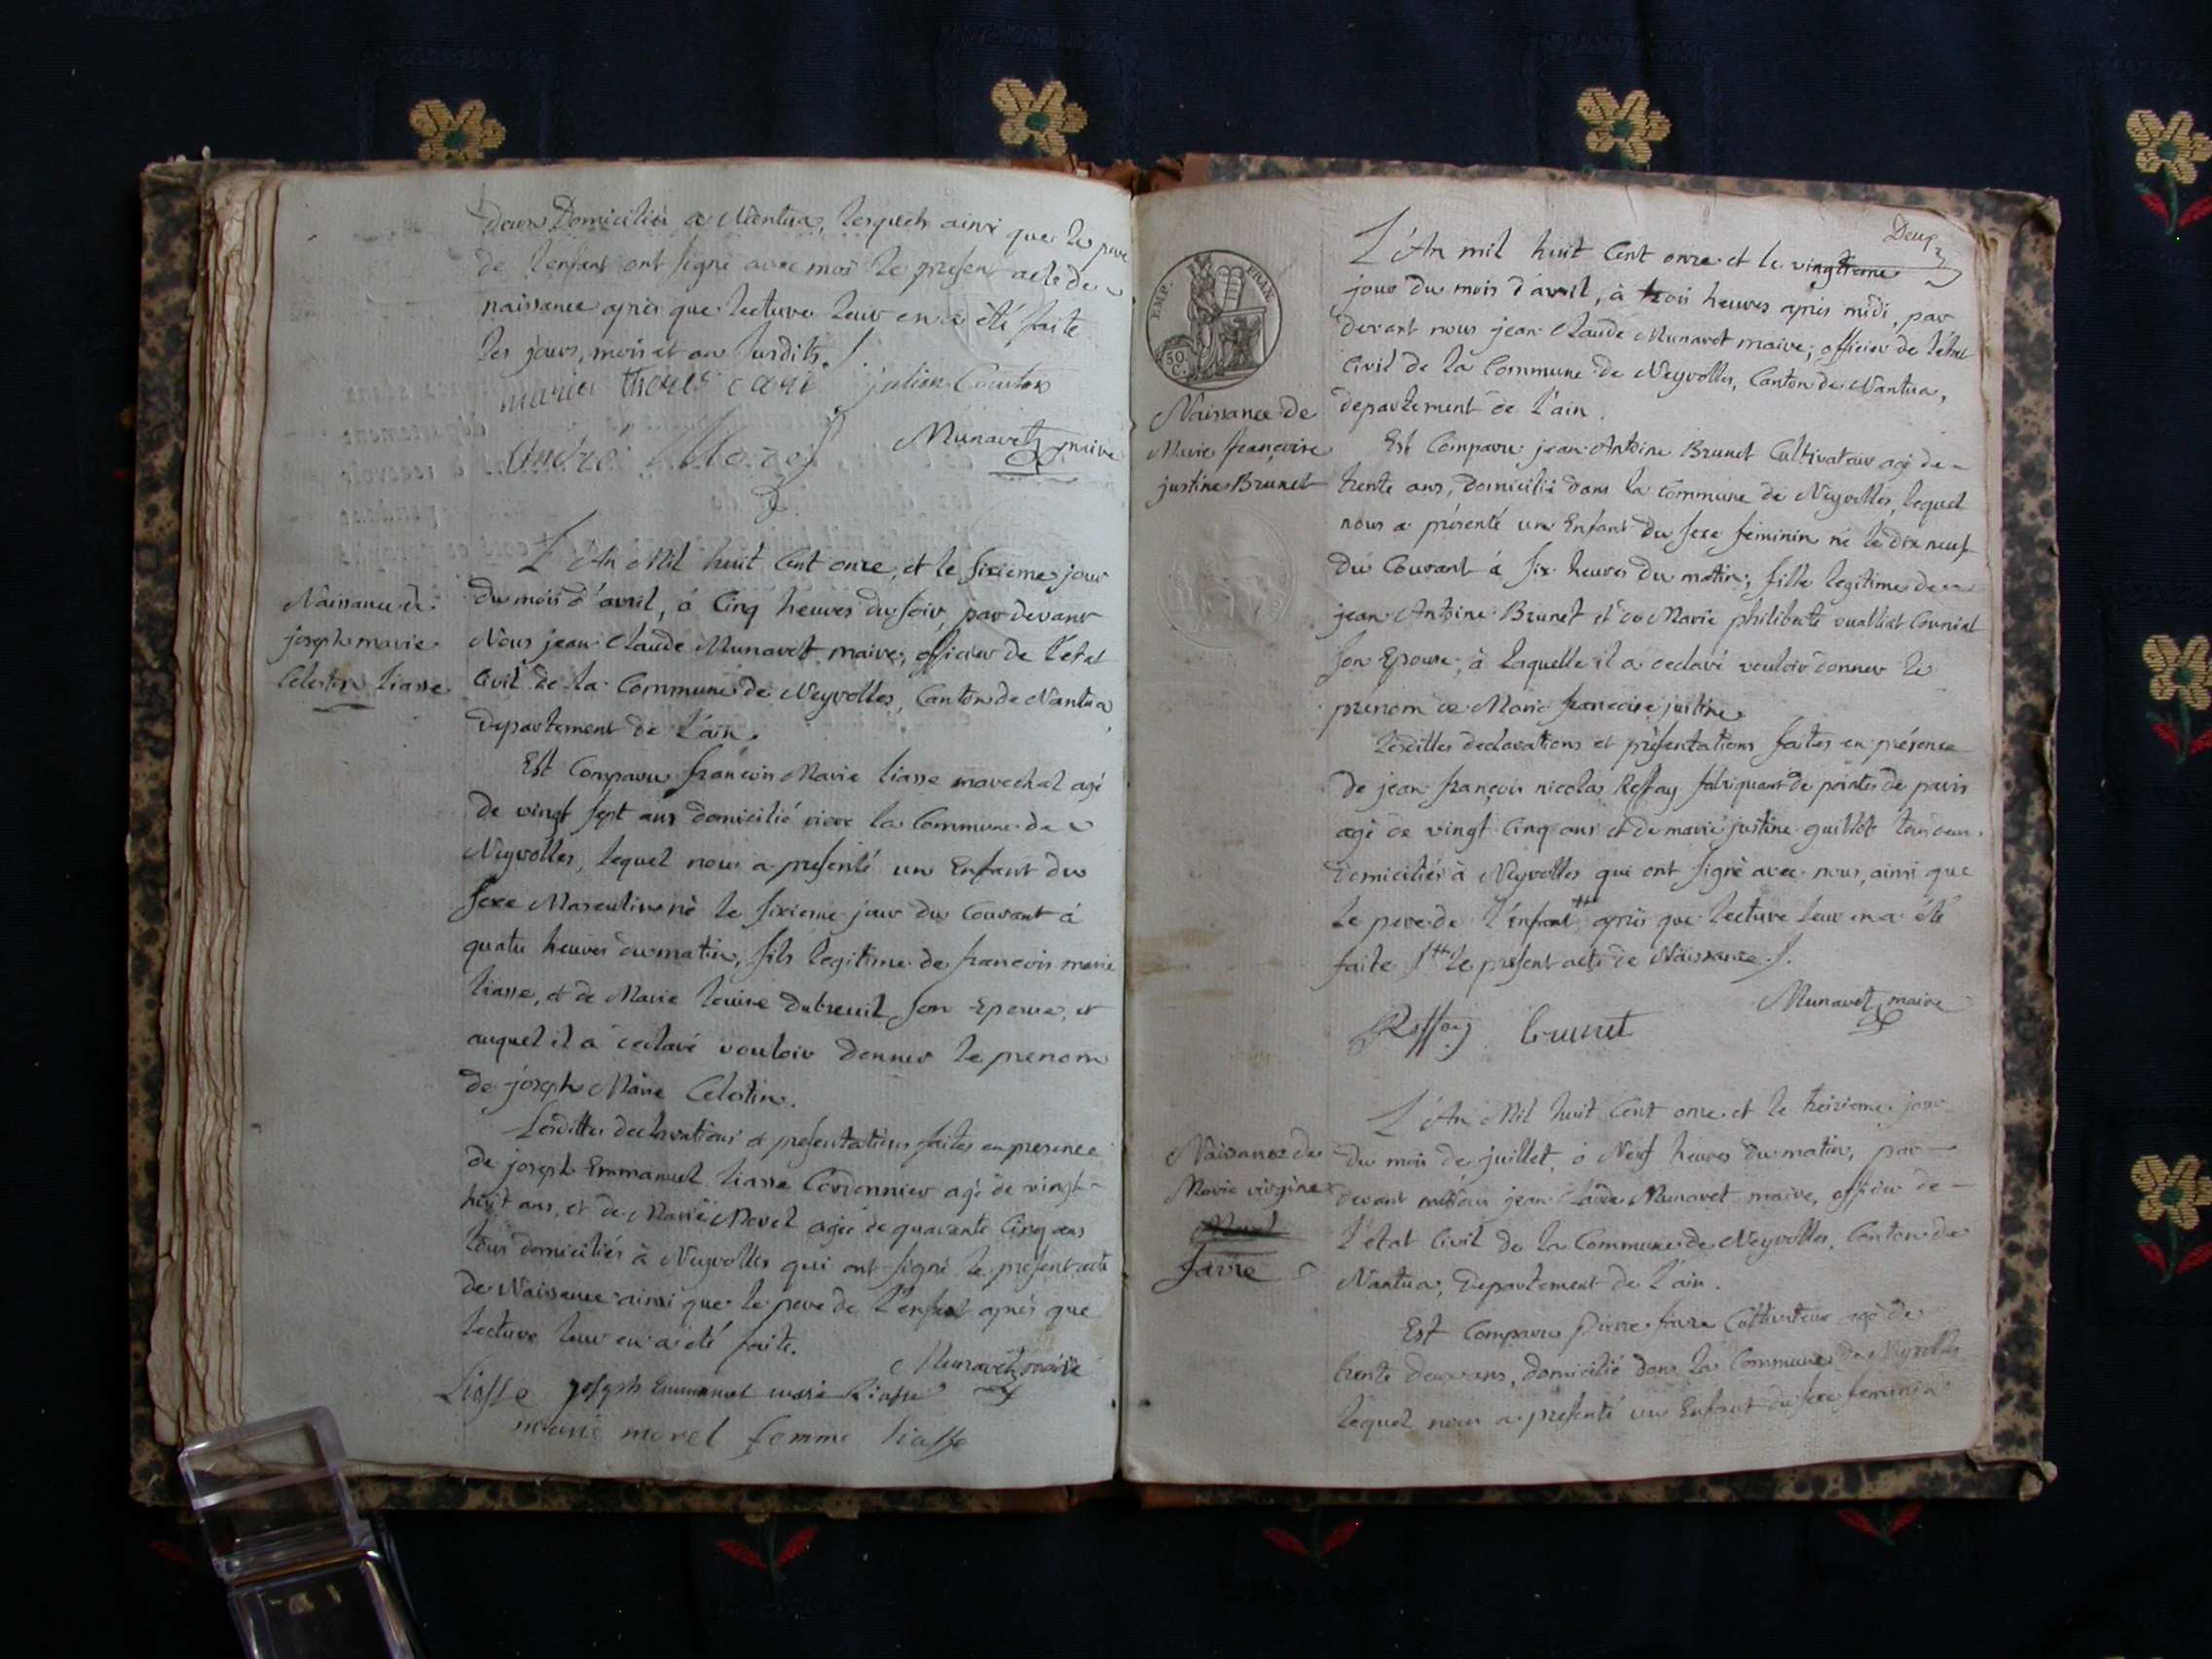 deux Domiciliés a Nantua, lesquels ainsi que le pere
de l'enfant ont signé avec moi le present acte de
naissance après que lecture leur en a été faite
les jours, mois et an susdits.
julien
Munavet maire
andré
L'An Mil huit Cent onze, et le sixieme jour
Naissance de
du mois d'avril, à Cinq heures du soir, par devant
joseph marie
Nous jean Claude Munavet maire, officier de l'état
Celestin liasse
Civil de la Commune de Neyrolles, Canton de Nantua,
Departement de l'ain.
Est Comparu françois Marie liasse marechal agé
de vingt sept ans domicilié la Commune de
Neyrolles, lequel nous a presenté un Enfant du
Sexe Masculin né le sixieme jour du Courant à
quatre heures du matin, fils legitime de françois marie
liasse, et de Marie louise Dubreuil son Epouse, et
auquel il a declaré vouloir donner le prenom
de joseph Marie Celestin.
Lesdittes declarations et presentations faites en presence
de joseph Emmanuel liasse Cordonnier agé de vingt
huit ans, et de Marie Morel agée de quarante Cinq ans
tous domiciliés à Neyrolles qui ont signé le present acte
de Naissance ainsi que le pere de l'enfant après que
lecture leur en a été faite.
Munavet maire
Liasse joseph Emmanuel marie liasse
marie morel femme liasse
Deux
L'An mil huit Cent onze et le vingtieme
EMP. FRAN.
jour du mois d'avril, à trois heures après midi, par
devant nous jean Claude Munavet maire, officier de l'état
50 C.
Civil de la Commune de Neyrolles, Canton de Nantua,
Naissance de
departement de l'ain.
Marie françoise
Est Comparu jean Antoine Brunet Cultivateur agé de
justine Brunet
trente ans, domicilié dans la commune de Neyrolles, lequel
nous a présenté un Enfant du sexe féminin né le dix neuf
du Courant à six heures du matin, fille legitime de
jean Antoine Brunet et de Marie philiberte
son Epouse, à laquelle il a declaré vouloir donner le
prenom de Marie françoise justine
Lesdittes declarations et présentations faites en présence
de jean françois nicolas Reffay fabriquant de pointes de paris
agé de vingt Cinq ans et de marie justine guillot tous deux
domiciliés à Neyrolles qui ont signé avec nous, ainsi que
le pere de l'enfant après que lecture leur en a été
faite le present acte de Naissance.
Munavet maire
Reffay brunet
L'An Mil huit Cent onze et le treizieme jour
Naissance de
du mois de juillet, à Neuf heures du matin, par
Marie virginie
devant nous jean Claude Munavet maire, officier de
Morel
l'état Civil de la Commune de Neyrolles, Canton de
favre
Nantua, Departement de l'ain.
Est Comparu Pierre favre Cultivateur agé de
trente deux ans, domicilié dans la Commune de Neyrolles
lequel nous a presenté un Enfant du sexe feminin